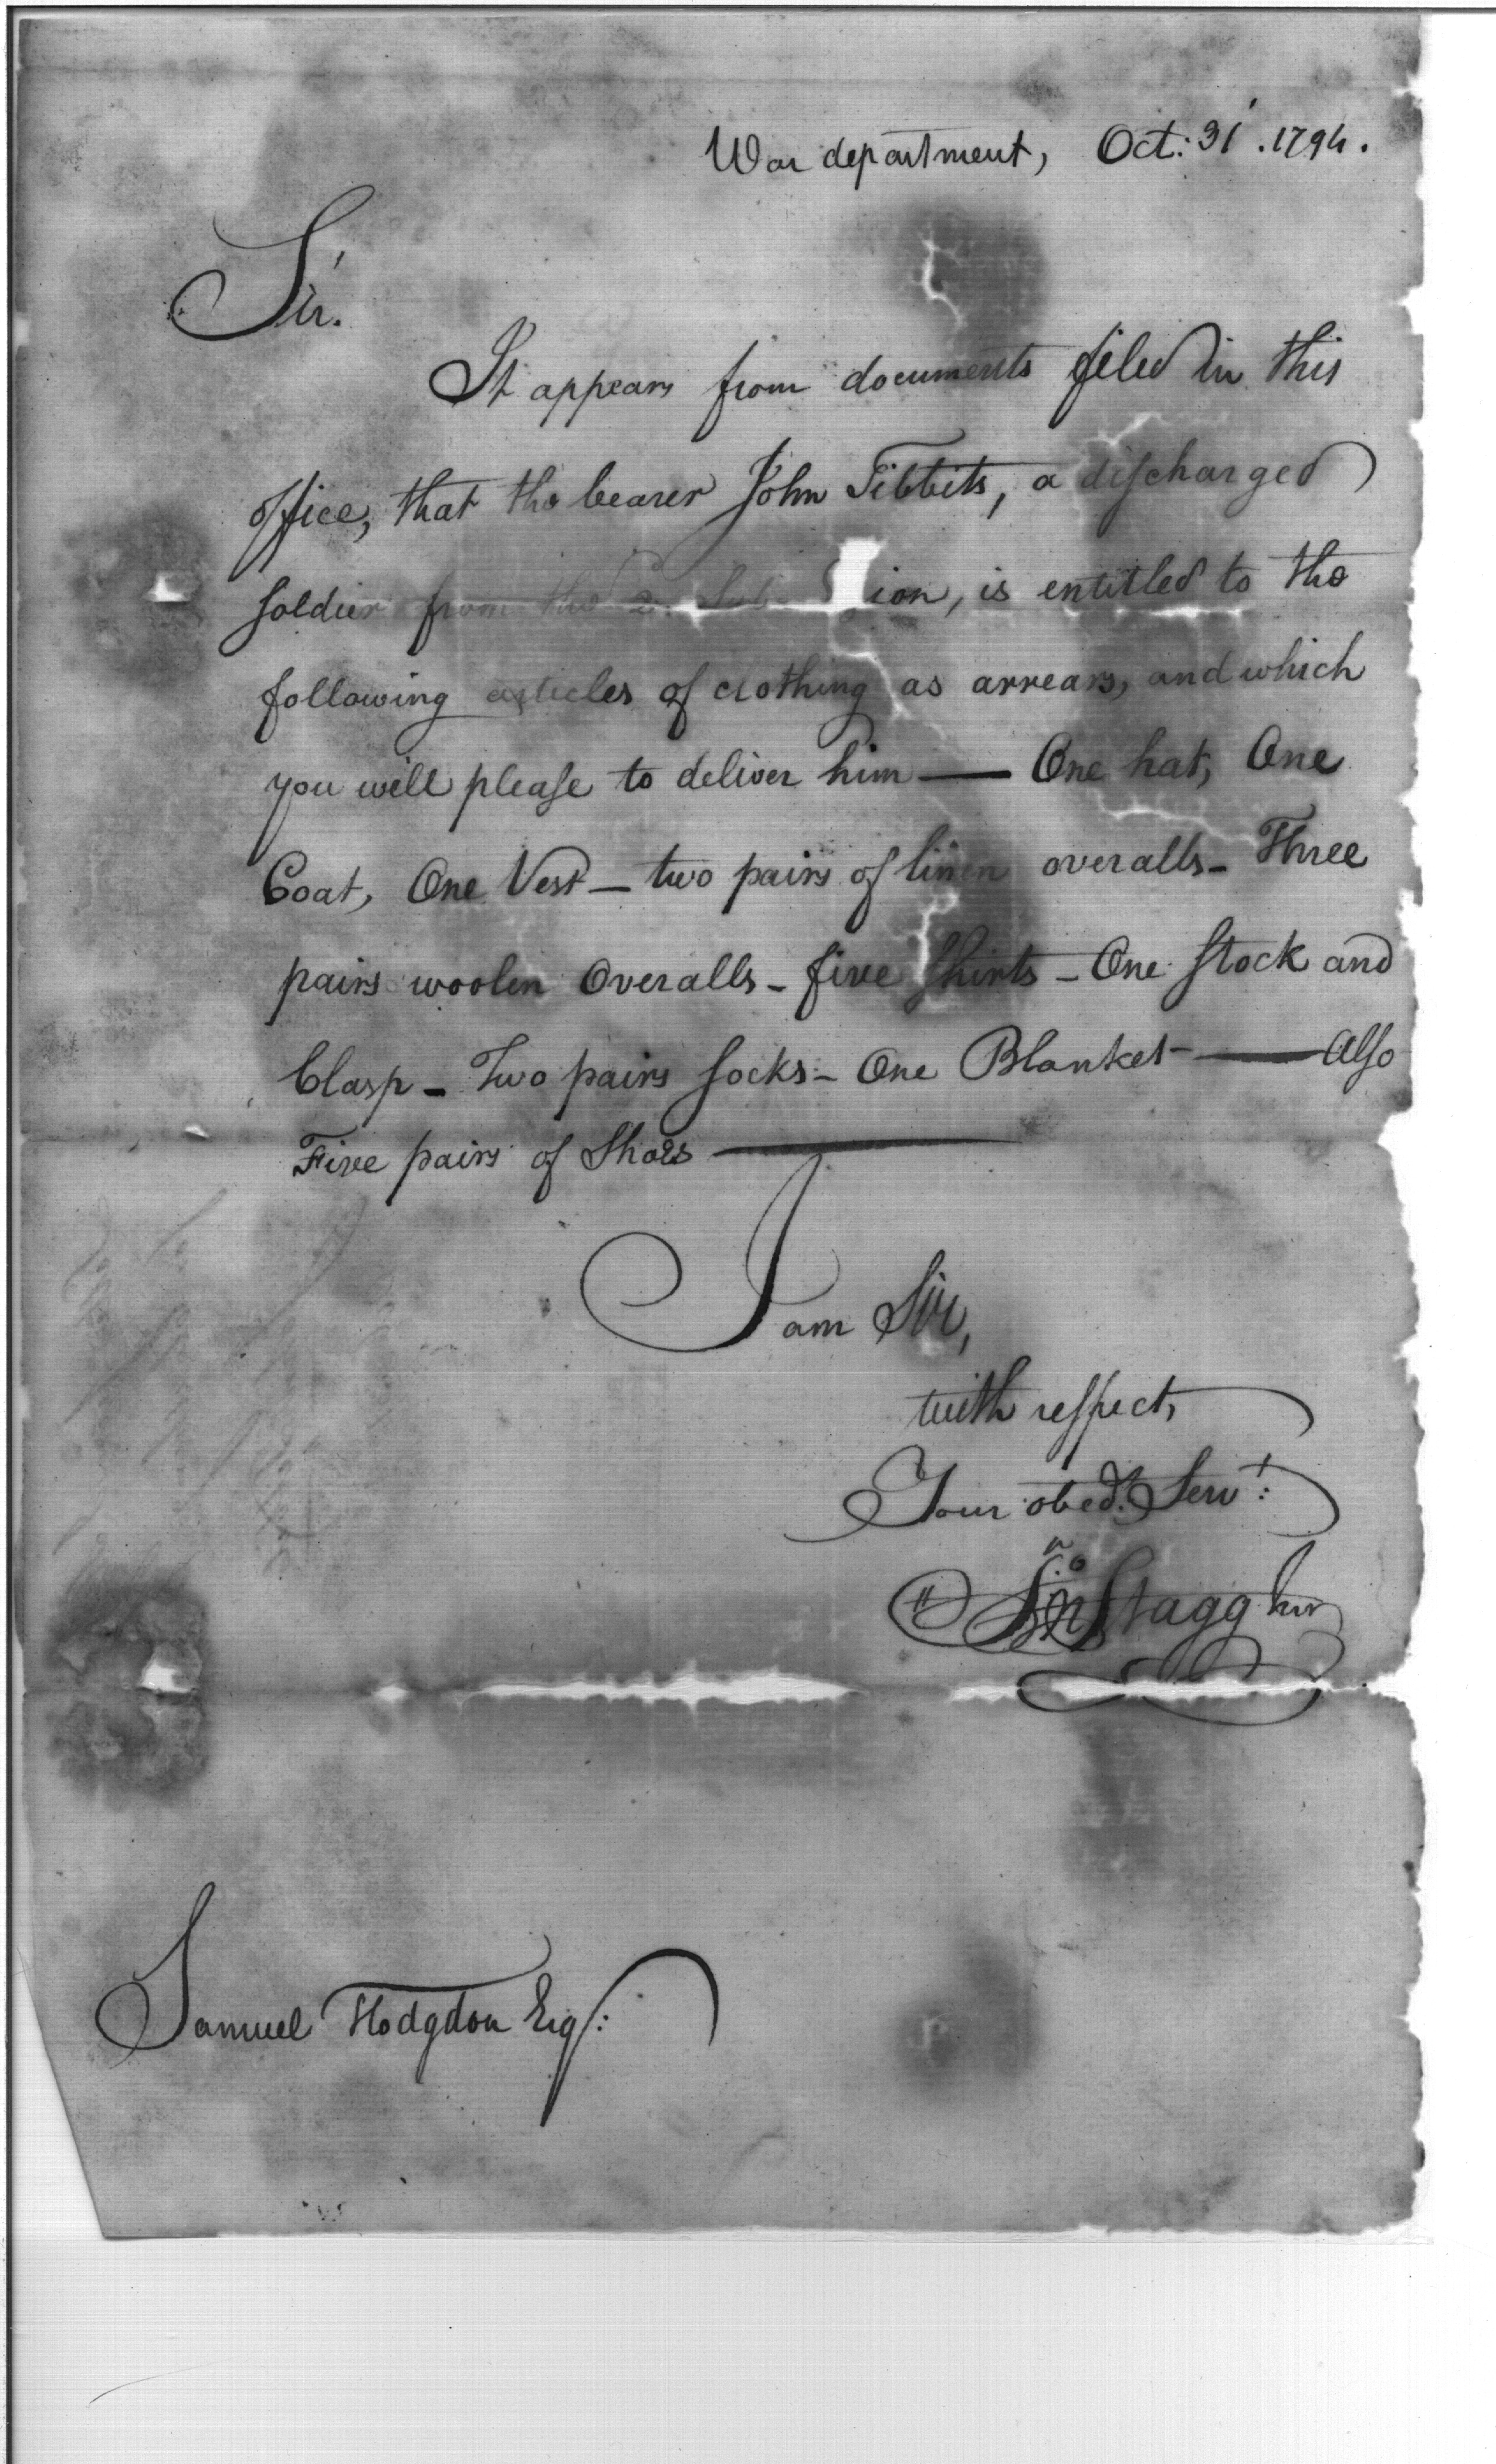 War department, Oct: 31. 1794.
Sir.
It appears from documents filed in this
office, that the bearer John Tibbits, a discharged
soldier from the 2 Sub ion, is entitled to the
following articles of clothing as arrears, and which
you will please to deliver him — One hat, One
Coat, One Vest — two pairs of linen overalls — Three
pairs woolen Overalls — five Shirts — One Stock and
Clasp — Two pairs Socks — One Blanket — Also
Five pairs of Shoes —
I am Sir,
with respect,
Your obed. Servt:
Jno Stagg Junr
Samuel Hodgdon Esq: